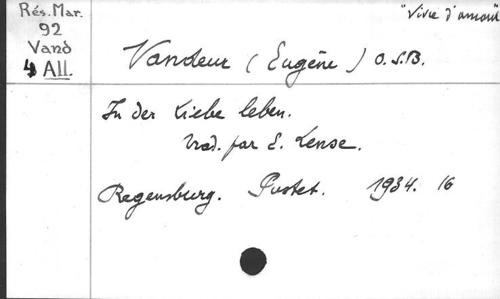 Rés. Mar.
92
Vand
4 All.
"Vivre d'amour"
Vandeur (Eugène) O.S.B.
In der Liebe leben.
Trad. par E. Lense.
Regensburg. Pustet. 1934. 16